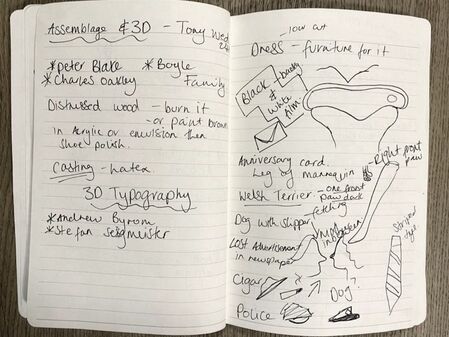 Assemblage & 3D - Tony
*Peter Blake *Boyle
Family
*Charles Oakley
Distressed wood - burn it
- or paint brown
in acrylic or emulsion then
shoe polish.
Casting - Latex
3D Typography
*Andrew Byrom
*Stefan Segmeister
- low cut
Dress - furnature for it
Black
&
White
film
Anniversary card.
Leg of mannequin
- Right front
paw
Welsh Terrier - one front
paw dark
Dog with slipper
fetching
Lost Advertisement
in newspaper
Umbrella
in
Striped
tye
Cigar
Dog?
Police